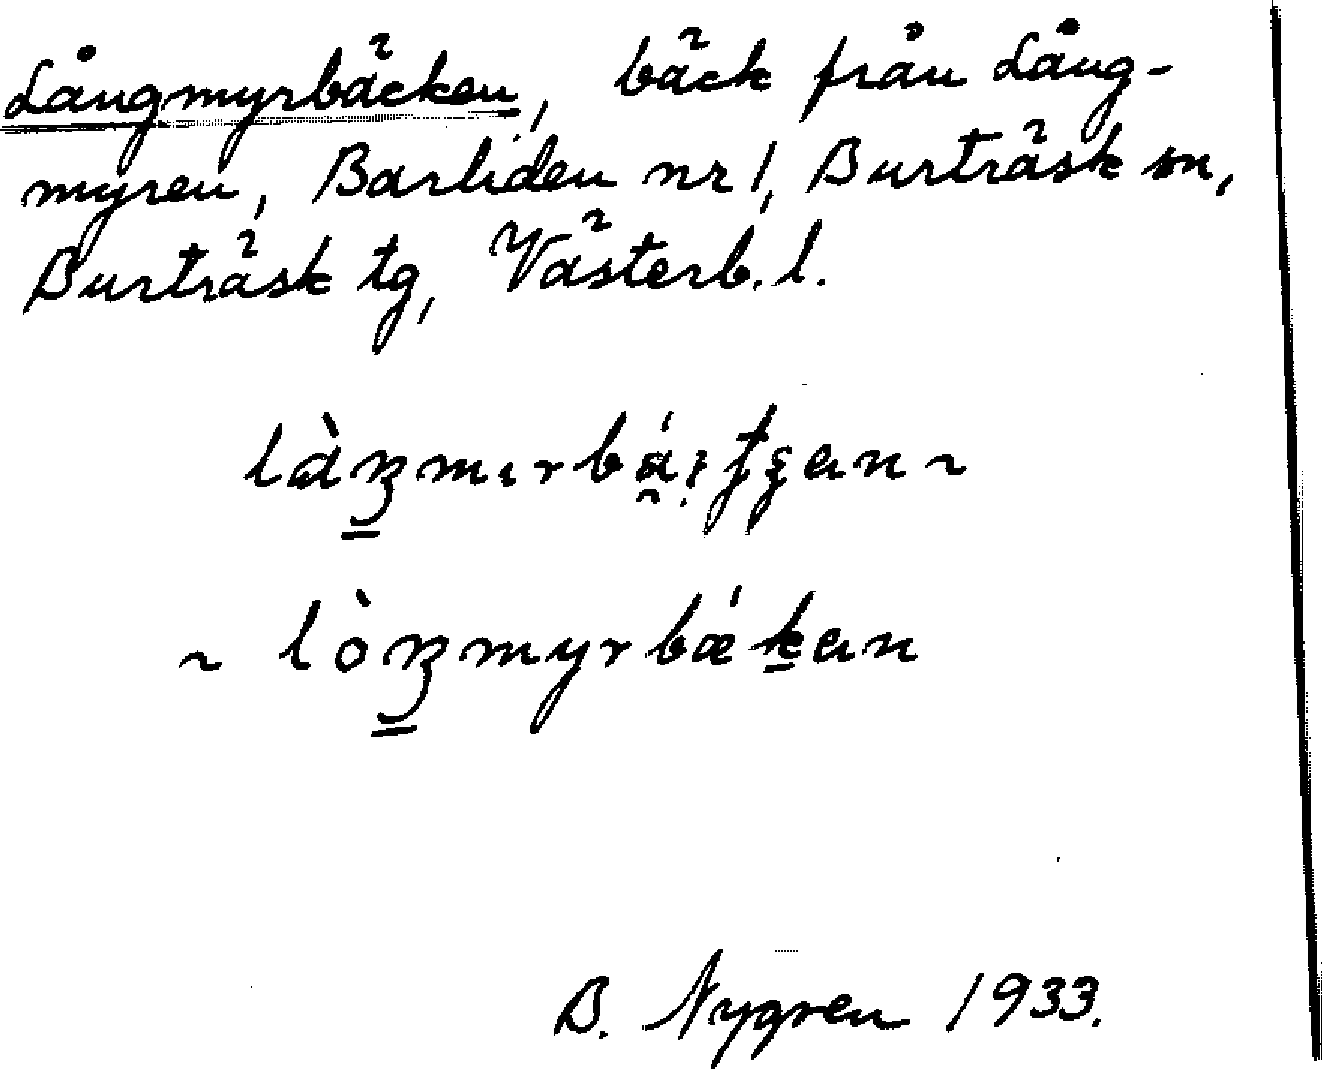 Långmyrbäcken, bäck från Lång-
myren, Barliden nr 1, Burträsk sn,
Burträsk tg, Västerb. l.
~ lòŋmyrbǽkan
B. Nygren 1933.